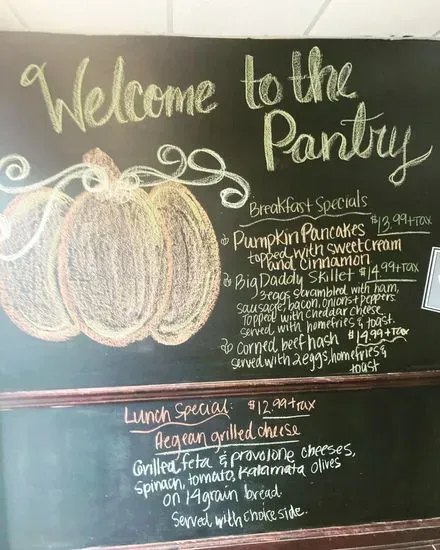 Welcome to the
Pantry
Breakfast Specials
Pumpkin Pancakes $13.99+TAX
topped with sweet cream
and cinnamon
Big Daddy Skillet $14.99+TAX
3 eggs scrambled with ham,
sausage, bacon, onions+peppers.
Topped with cheddar cheese
served with homefries & toast.
Corned beef hash $14.99+TAX
served with 2 eggs, homefries &
toast
Lunch Special: $12.99+TAX
Aegean grilled cheese
Grilled feta & provolone cheeses,
spinach, tomato, Kalamata olives
on 14 grain bread.
Served with choice side.